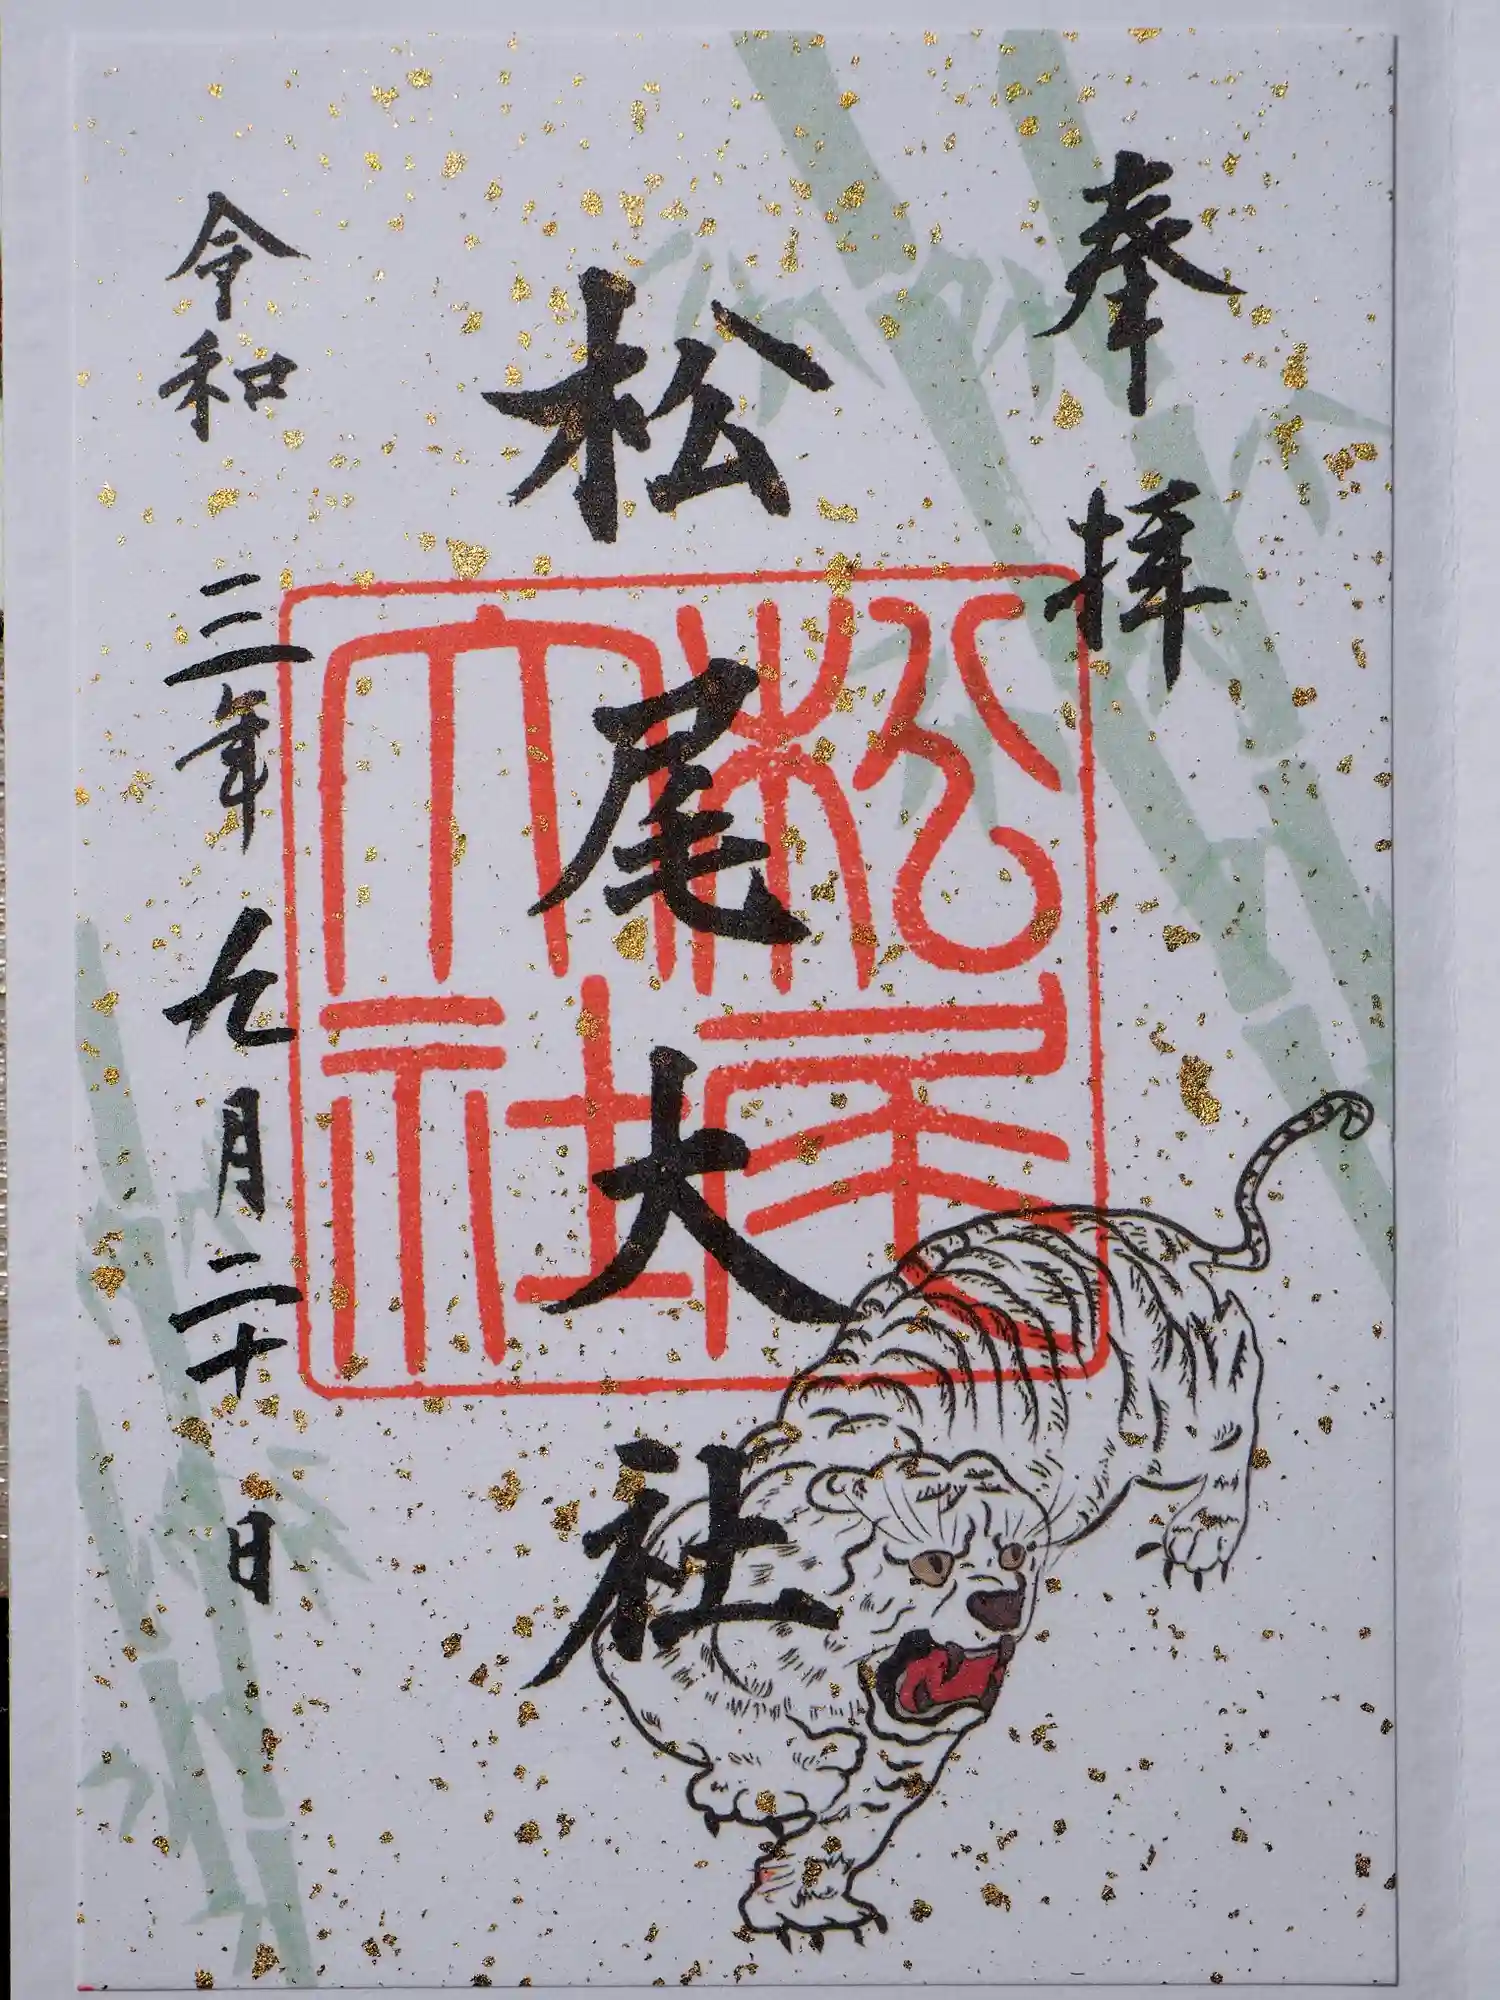 奉拝
松尾大社
松尾大社
令和三年九月二十日